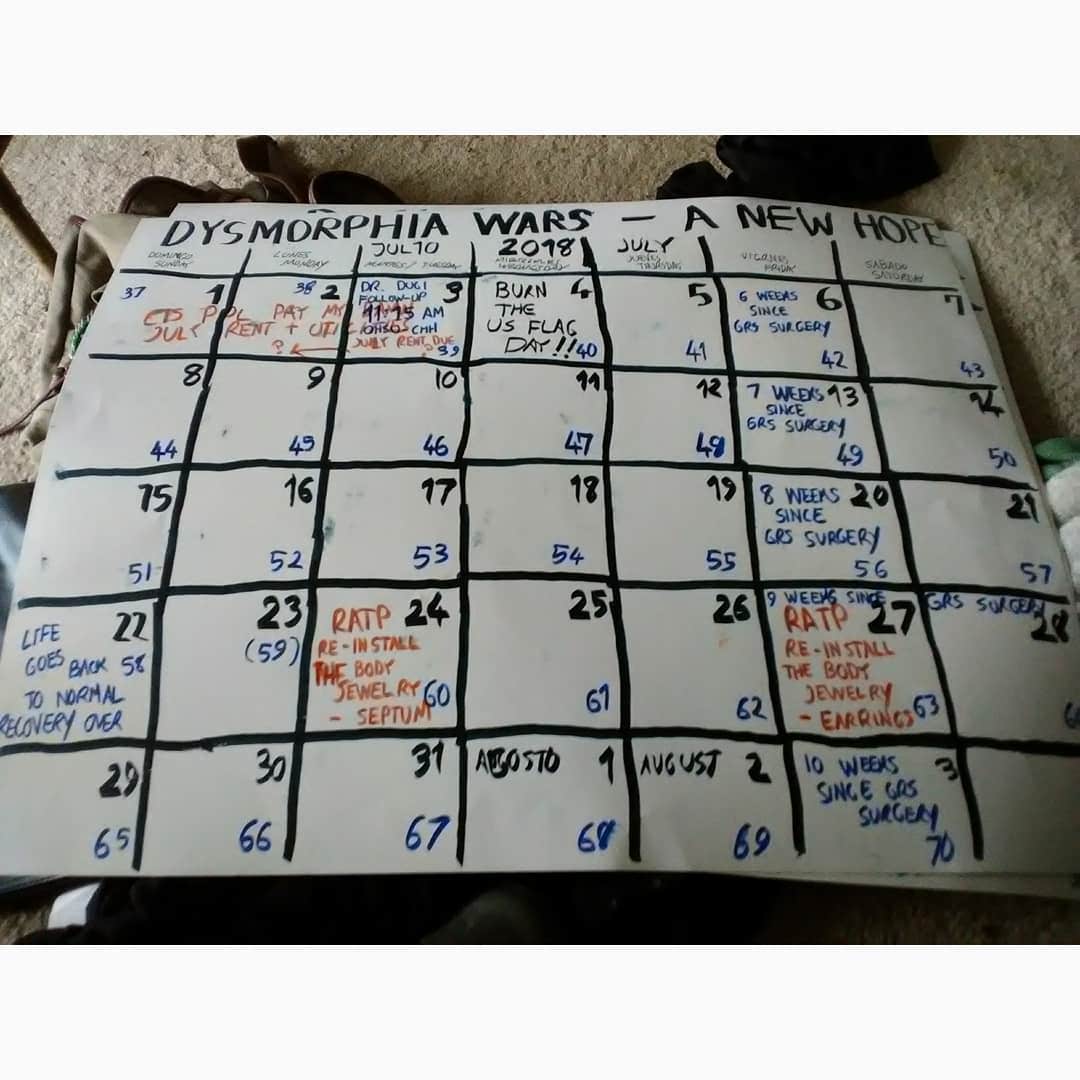 DYSMORPHIA WARS - A NEW HOPE
JULIO 2018 JULY
DOMINGO LUNES MARTES/TUESDAY MIERCOLES JUEVES VIERNES SABADO
SUNDAY MONDAY WEDNESDAY THURSDAY FRIDAY SATURDAY
37 1
38 2
PAY MY
JULY RENT +
?
DR. DUGI 3
FOLLOW-UP
11:15 AM
OHSU CHH
JULY RENT DUE
39
BURN 4
THE
US FLAG
DAY!! 40
5
41
6 WEEKS 6
SINCE
GRS SURGERY
42
7
43
8
44
9
45
10
46
11
47
12
48
7 WEEKS 13
SINCE
GRS SURGERY
49
14
50
15
51
16
52
17
53
18
54
19
55
8 WEEKS 20
SINCE
GRS SURGERY
56
21
57
22
LIFE
GOES BACK 58
TO NORMAL
RECOVERY OVER
23
(59)
RATP 24
RE-INSTALL
THE BODY
JEWELRY 60
- SEPTUM
25
61
26
62
9 WEEKS SINCE GRS SURGERY
RATP 27
RE-INSTALL
THE BODY
JEWELRY 63
- EARRINGS
28
29
65
30
66
31
67
AGOSTO 1
68
AUGUST 2
69
10 WEEKS 3
SINCE GRS
SURGERY
70